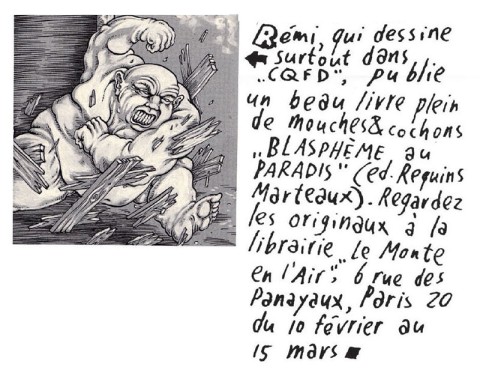 Rémi, qui dessine
surtout dans
„CQFD", publie
un beau livre plein
de mouches&cochons
„BLASPHÈME au
PARADIS" (ed. Requins
Marteaux). Regardez
les originaux à la
librairie „Le Monte
en l'Air", 6 rue des
Panayaux, Paris 20
du 10 février au
15 mars